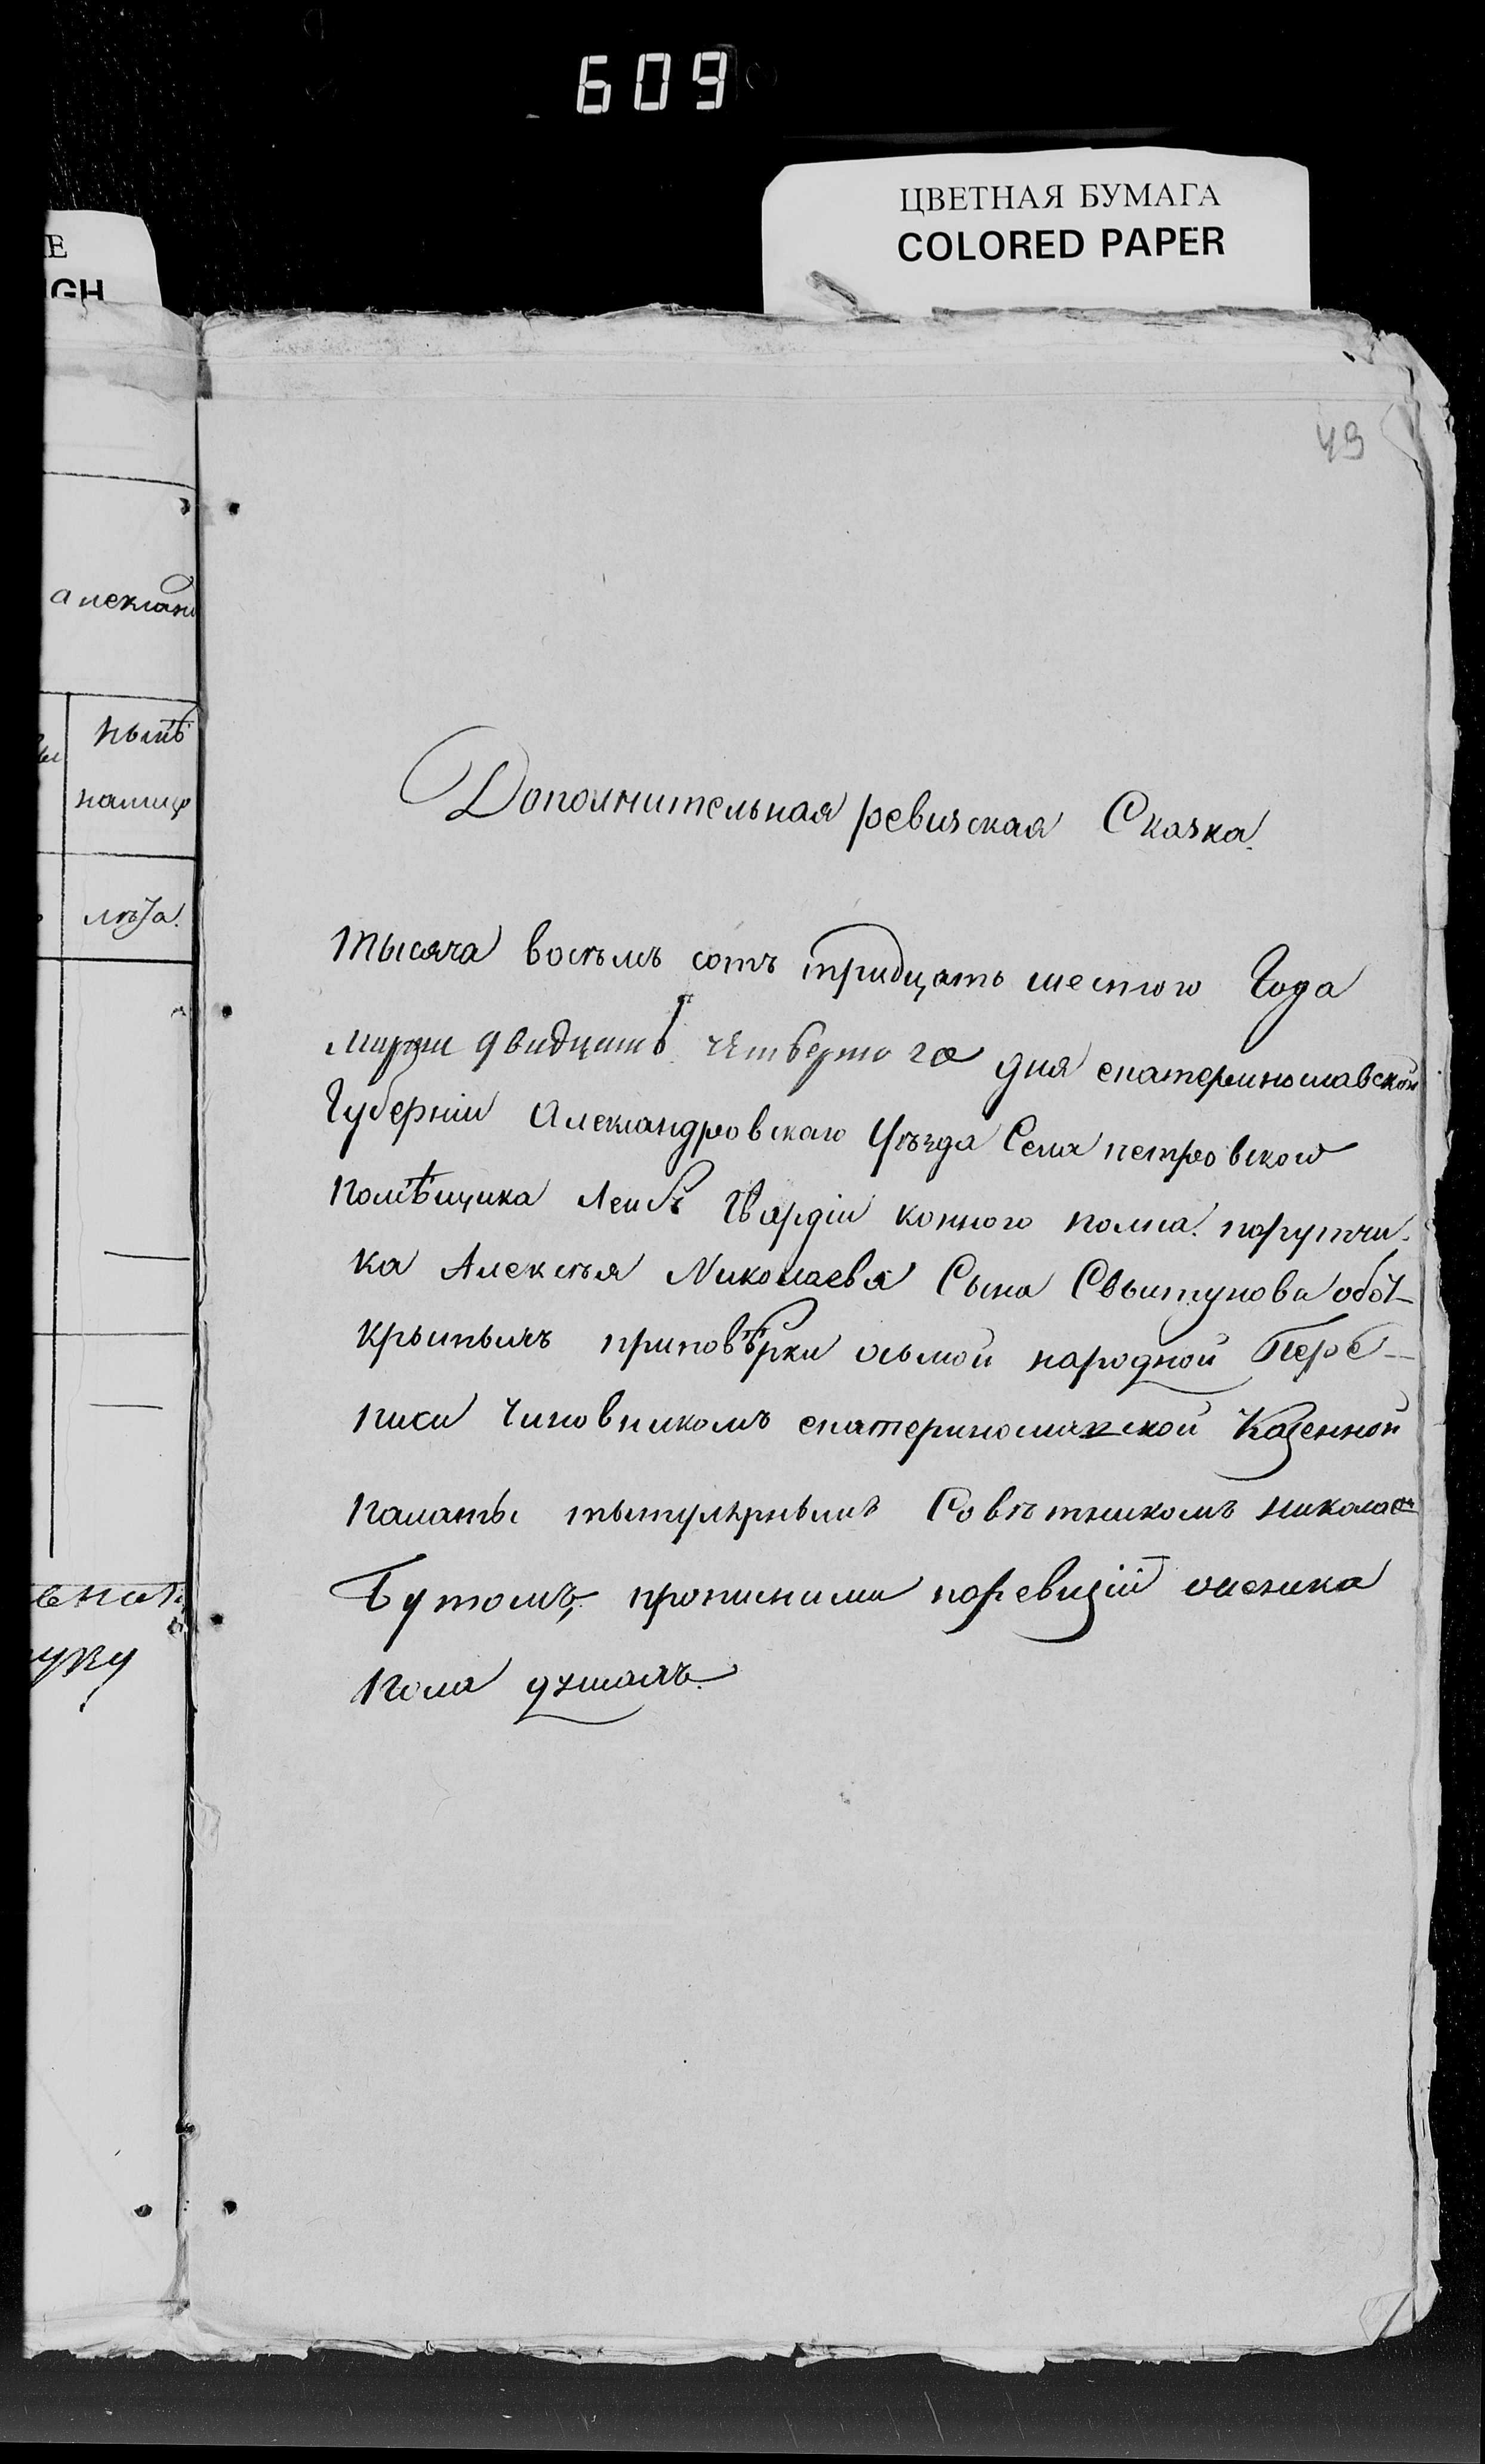 609
ЦВЕТНАЯ БУМАГА
COLORED PAPER
Е
GH
49
алексан
нынѣ
налицо
лѣта.
Дополнительная ревизская Сказка.
тысяча восѣмъ сотъ тридцать шестого Года
марта двадцать четвертого дня екатеринославской
Губерніи Александровскаго Уѣзда Села петровского
помѣщика Леибъ Гвардіи конного полка. порутчи-
ка Алексѣя Николаева Сына Свытунова обот-
крытымъ приповѣрки осьмой народной Пере-
писи Чиновникомъ екатеринославской Казенной
палаты тытулярнымъ Совѣтникомъ николаем
Бутомъ, прописными поревизіи мужска
пола душамъ.